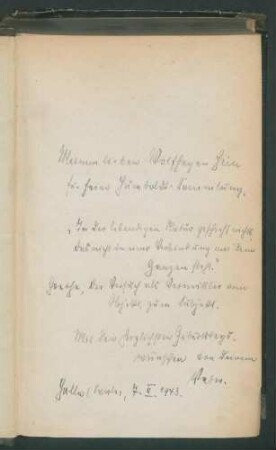 Meinem lieben Wolfhagen Hein
für seine Humboldt-Sammlung.
„In der lebendigen Natur geschieht nichts,
das nicht in einer Verbindung mit dem
Ganzen steht."
Goethe, Der Versuch als Vermittler von
Objekt zum Subjekt.
Mit den herzlichsten Geburtstags-
wünschen von Deinem
Halle/Saale, 7. 1948.